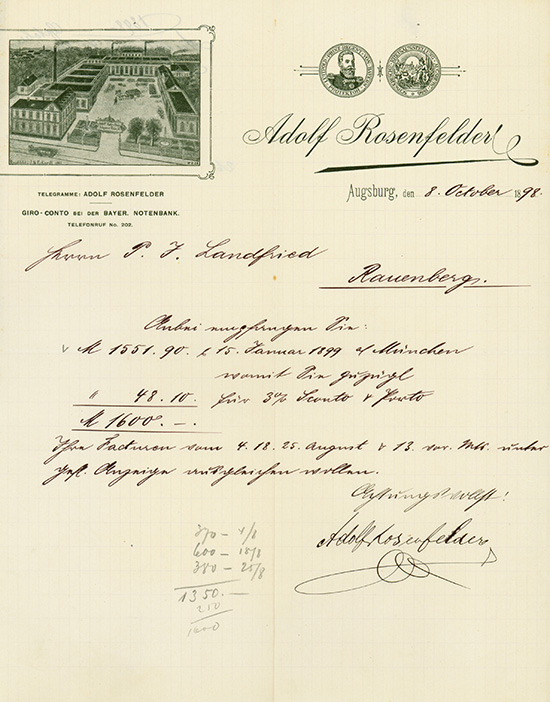 Adolf Rosenfelder
TELEGRAMME: ADOLF ROSENFELDER
GIRO-CONTO BEI DER BAYER. NOTENBANK.
TELEFONRUF No. 202.
Augsburg, den 8. October 1898.
Herrn P. J. Landfried
Rauenberg.
Anbei empfangen Sie:
M 1551.90. 15. Januar 1899 München
womit Sie zuzügl
" 48.10. für 3% Sconto & Porto
M 1600.—.
Ihre Facturen vom 4. 18. 25. August & 13. vor. Mts. unter
gefl. Anzeige ausgleichen wollen.
Achtungsvollst!
Adolf Rosenfelder
370 — 4/8
600 — 18/8
380 — 25/8
1350.—
210